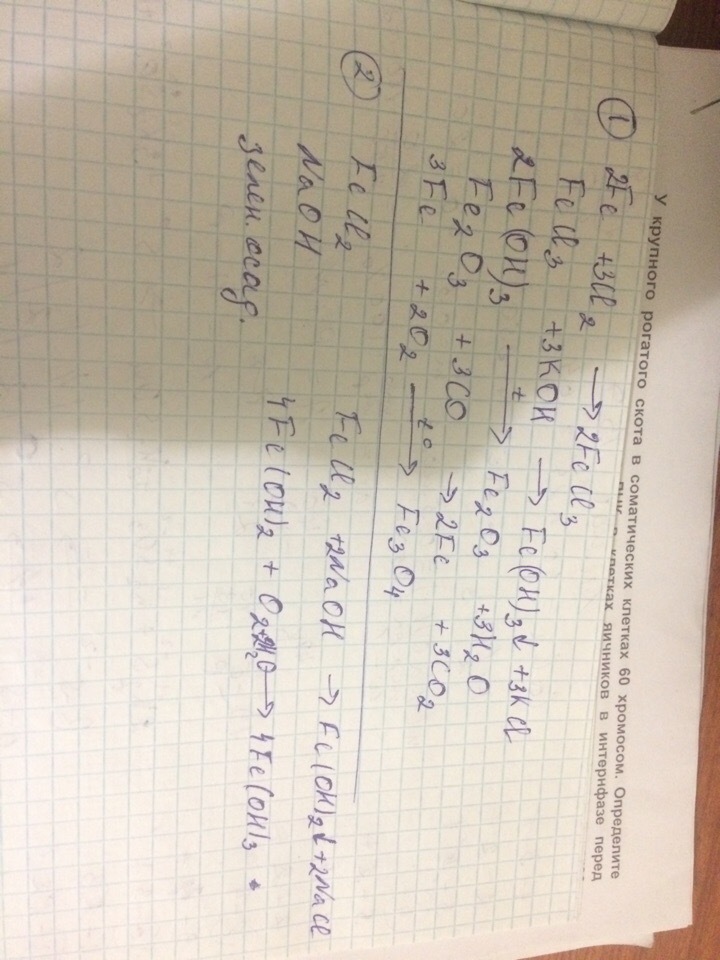 У крупного рогатого скота в соматических клетках 60 хромосом. Определите
клетках яичников в интернфазе перед
① 2Fe + 3Cl₂ → 2FeCl₃
FeCl₃ + 3KOH → Fe(OH)₃↓ + 3KCl
2Fe(OH)₃ →ᵗ Fe₂O₃ + 3H₂O
Fe₂O₃ + 3CO → 2Fe + 3CO₂
3Fe + 2O₂ →ᵗ°ᶜ Fe₃O₄
② FeCl₂
NaOH
зелен. осад.
FeCl₂ + 2NaOH → Fe(OH)₂↓ + 2NaCl
4Fe(OH)₂ + O₂ + 2H₂O → 4Fe(OH)₃